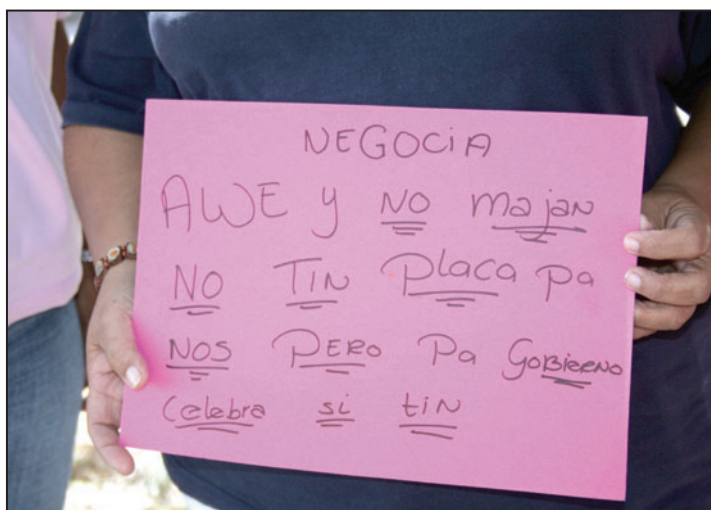 NEGOCiA
AWE y NO majan
NO TIN PLACA pa
NOS PERO Pa GOBIERNO
Celebra si tiN